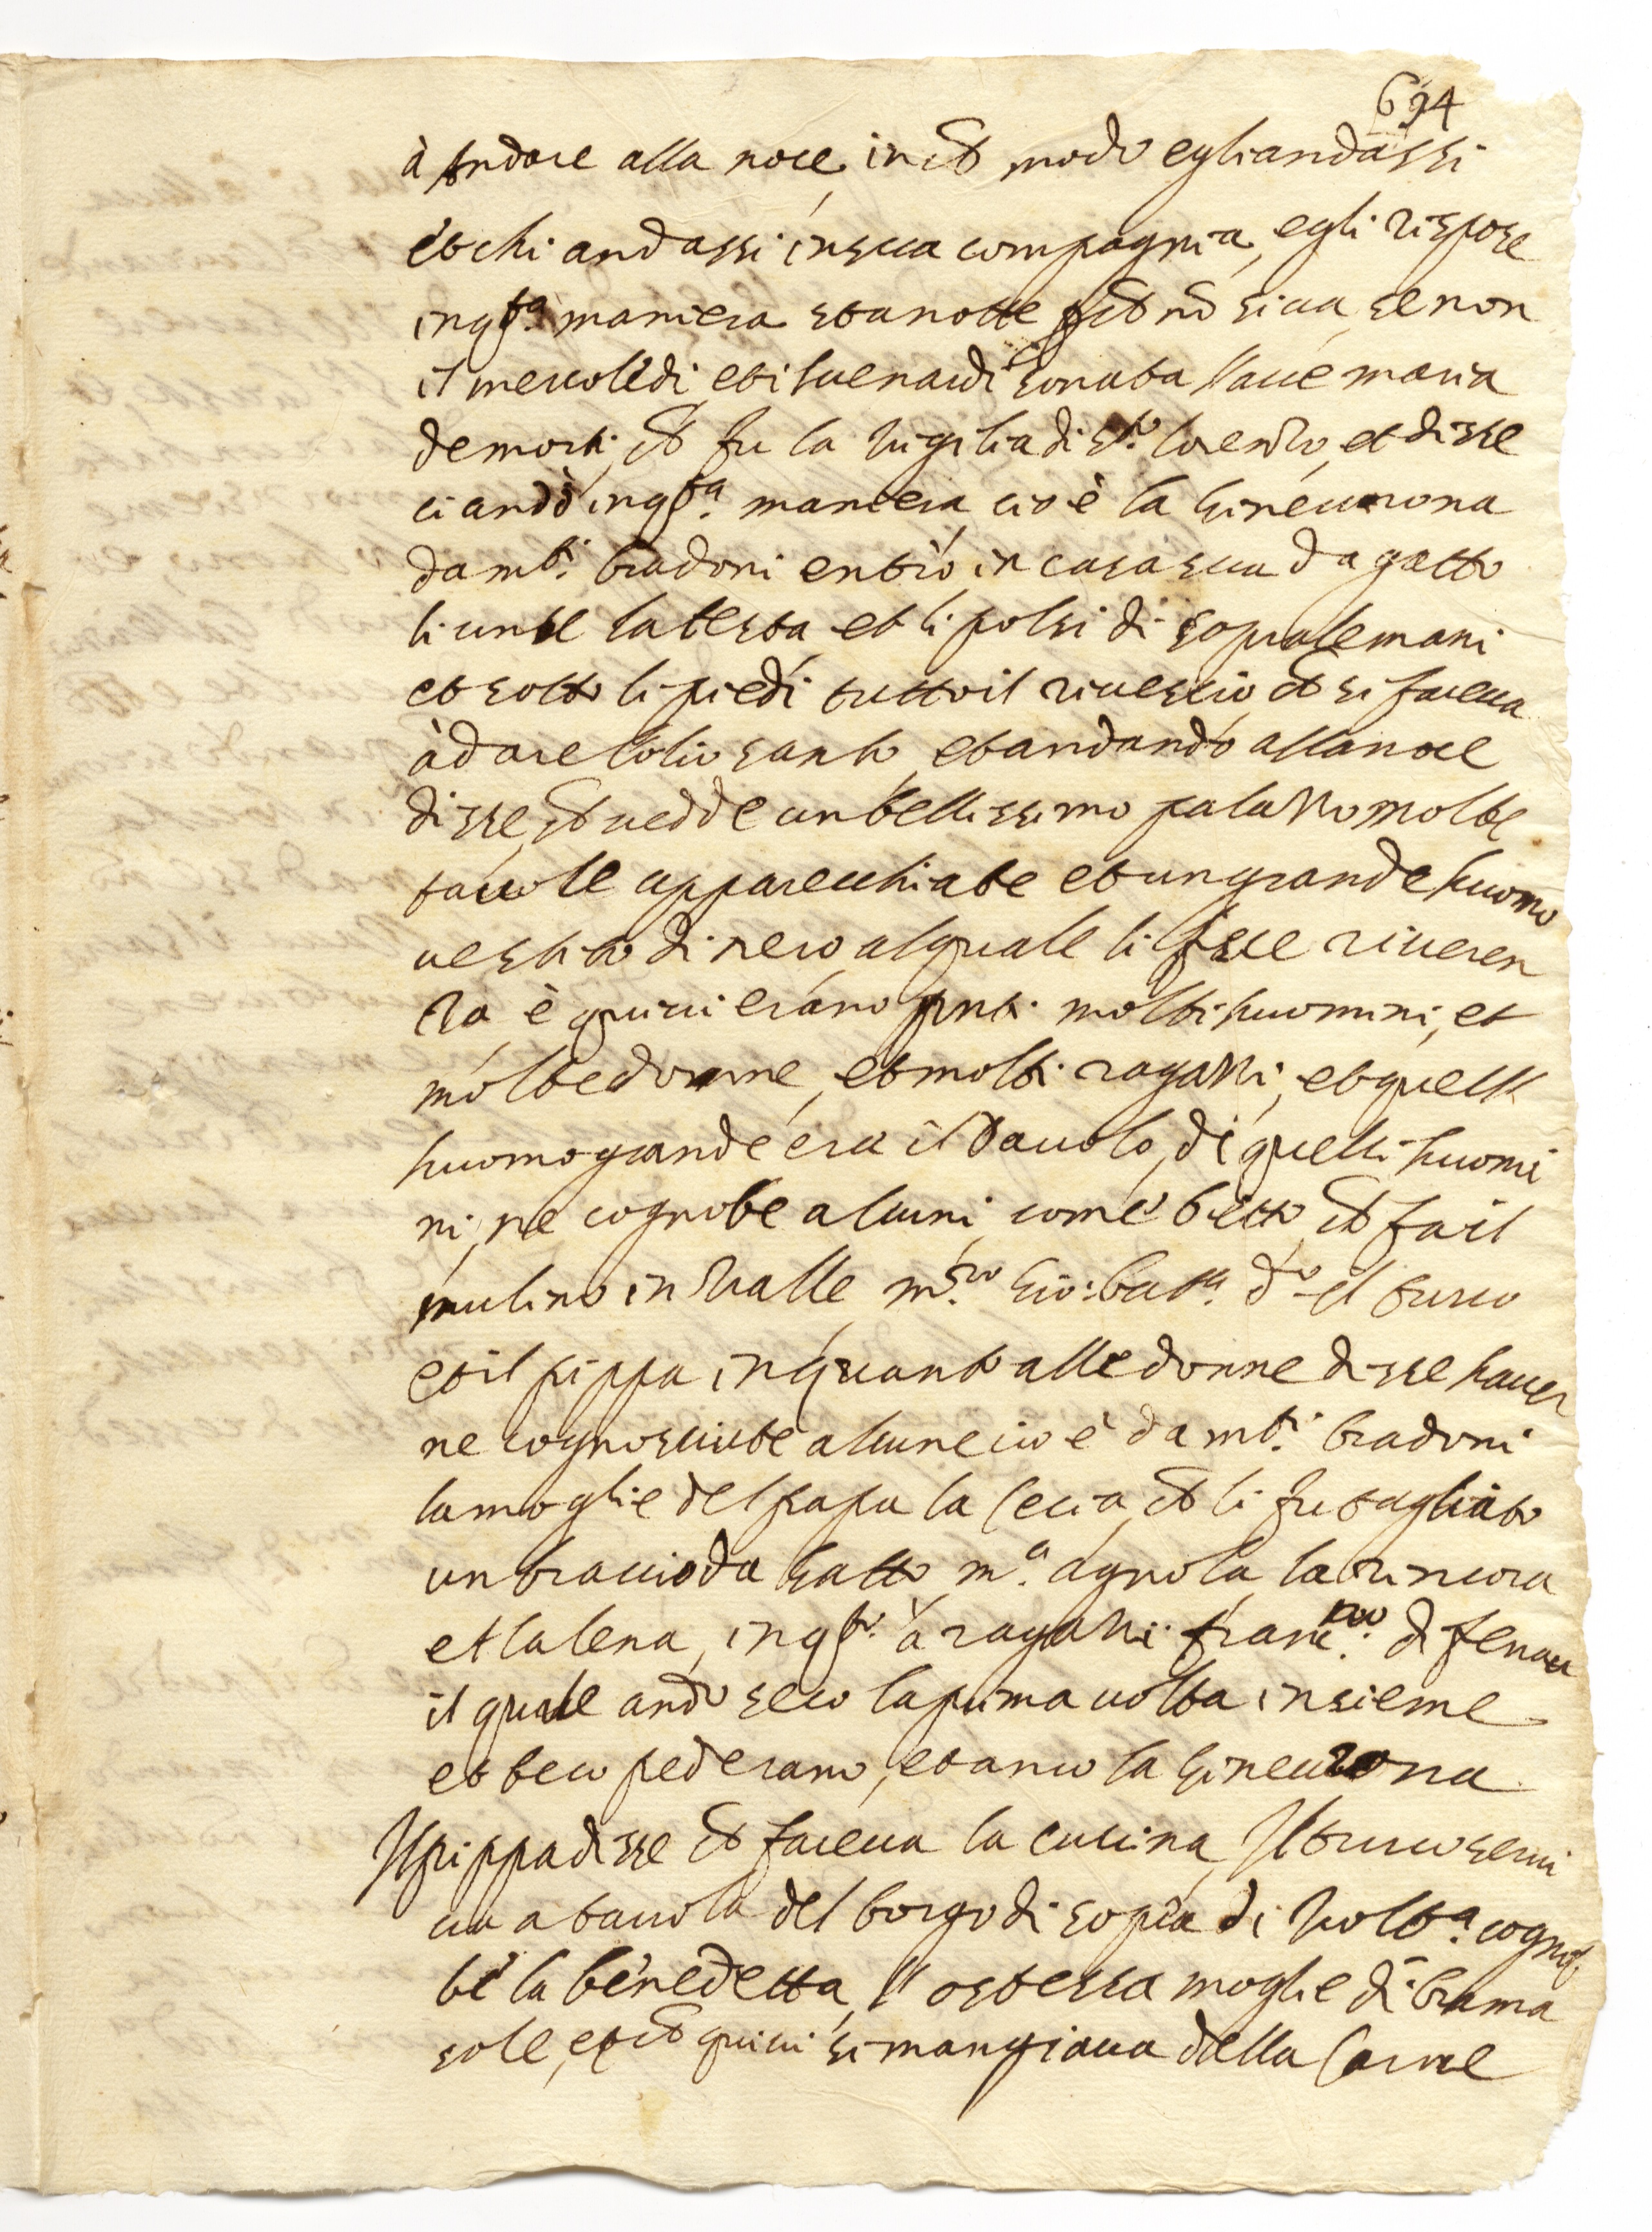 694
à andare alla noce, in ch modo egli andassi
et chi andassi in sua compagnia, egli rispose
in qsta maniera sta notte p ch nō si ua, se non
il mercoledi et il uenardi sonata l'aue maria
de morti, ch fu la uigilia di sto lorenzo, et disse
ci andò in qsta maniera cio è la gineurona
da mti bradoni entrò in casa sua da gatto
li unse la testa, et li polsi di sopra le mani
et sotto li piedi tutto il riuescio ch si faceua
à dare l'olio santo, et andando alla noce
disse ch uedde un bellissimo palazzo molte
tauole apparecchiate et un grande huomo
uestito di nero, al quale li fece riueren
za, è quiui erano pnti molti huomini, et
molte donne, et molti ragazzi, et quell
huomo grande era il Dauolo, di quelli huomi
ni, ne cognobe alcuni, come betto, ch fa il
mulino in Valle, mro Gio: bata do il turco
et il pippa, in quanto alle donne disse hauer
ne cognosciute alcune cio è da mti bradoni
la moglie del papa la Cecia, ch li fu tagliato
un braccio da gatto, ma agnola la rincora
et la lena, in qto à ragazzi franco di
il quale andò seco la prima uolta insieme
et beco pederano, et anco la gineurona
Il pippa disse ch faceua la cucina, Il turco serui
ua a tauola del borgo di sopra di Voltra cogno
bé la benedetta, l'ostessa moglie di brama
sole, et ch quiui si mangiaua della Carne